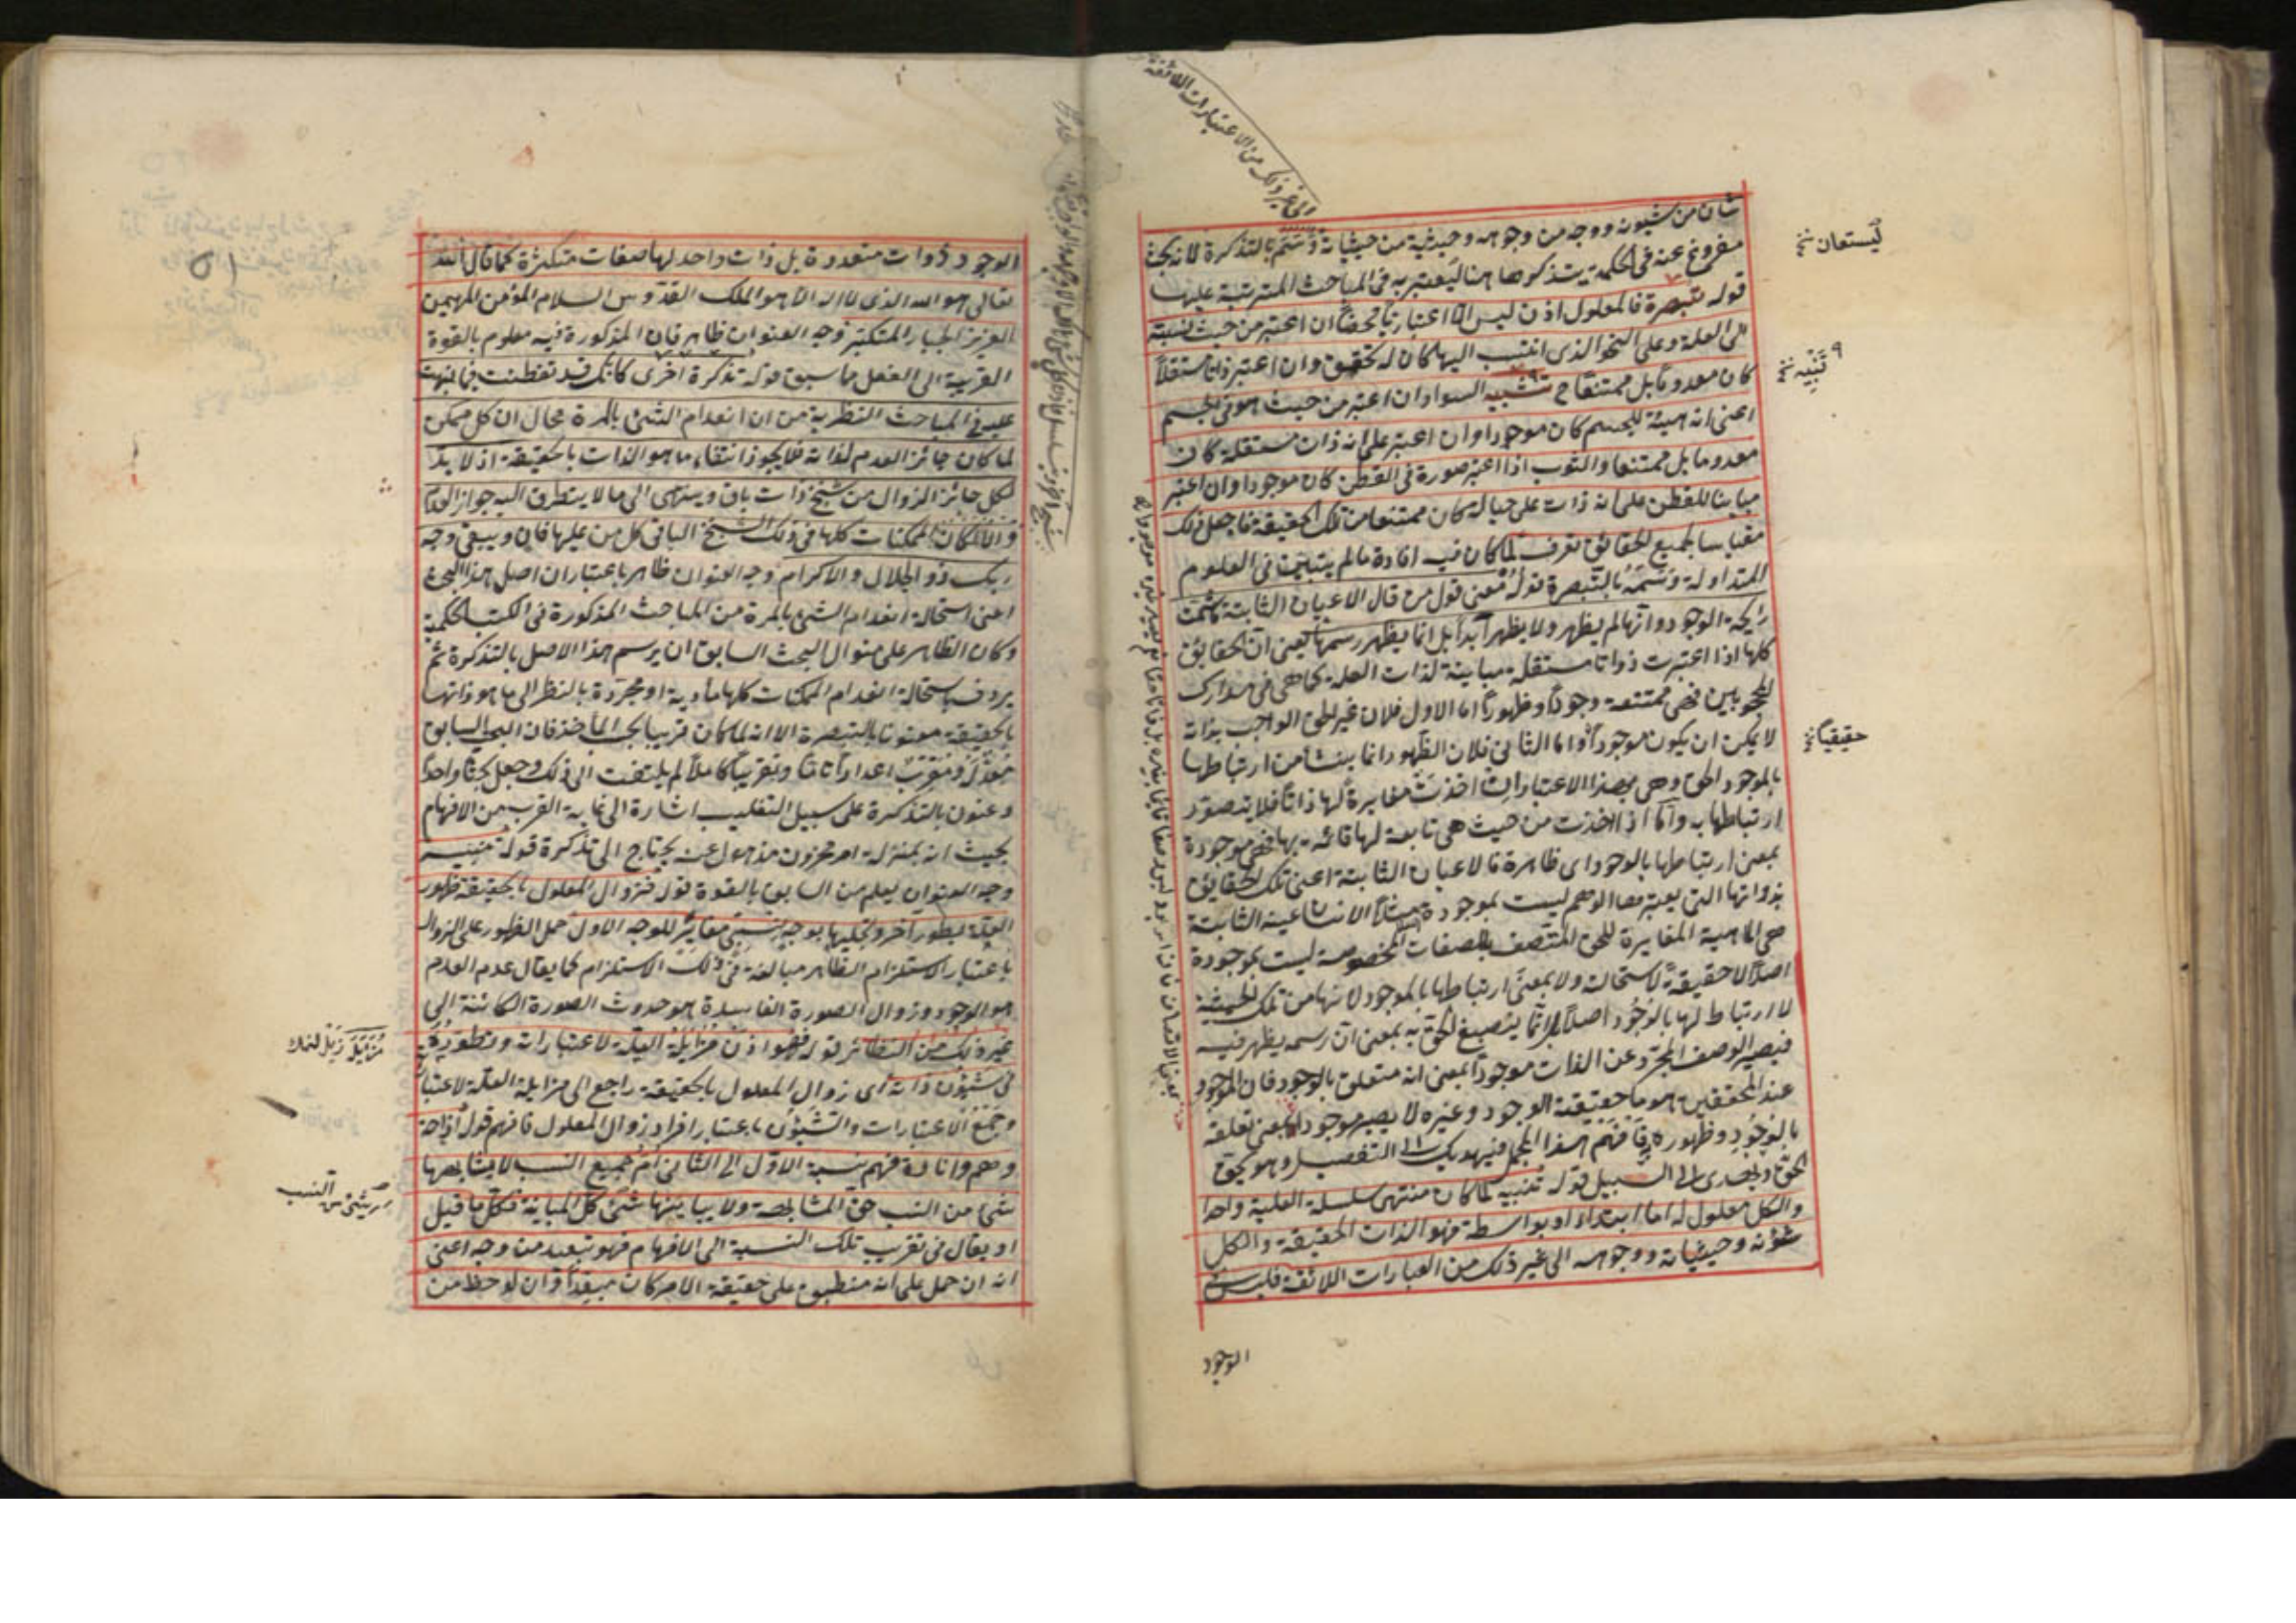 شان من شيونه ووجه من وجوهه وحيثية من حيثياته وتسم بالتذكرة لانه بحث
مفروغ عنه في الحكمة يتذكرها هنا ليعتبر به في المباحث المترتبة عليها
قوله تبصرة فالمعلول اذن ليس الا اعتباريا محضا ان اعتبر من حيث نسبته
الى العلة وعلى النحو الذي انتسب اليها كان له تحقق وان اعتبر ذاتا مستقلاً
كان معدوما بل ممتنعا تشبيه السواد ان اعتبر من حيث هو في الجسم
اعنى انه هيئة للجسم كان موجودا وان اعتبر على انه ذات مستقلة كان
معدوما بل ممتنعا والثوب اذا اعتبر صورة في القطن كان موجودا وان اعتبر
مباينا للقطن على انه ذات على حياله كان ممتنعا من تلك الحقيقة فاجعل ذلك
مقياسا لجميع الحقائق تعرف لما كان فيه افادة مالم يتبين في العلوم
المتداولة وسمه بالتبصرة قوله معنى قول من قال الاعيان الثابتة ما شمت
رايحة الوجود وانها لم يظهر ولا يظهر أبداً بل انما يظهر رسمها يعنى ان الحقايق
كلها اذا اعتبرت ذواتا مستقلة مباينة لذات العلة كما هي في مدارك
المحجوبين فهي ممتنعة وجوداً وظهوراً اما الاول فلان غير الحق الواجب بذاته
لا يمكن ان يكون موجوداً واما الثاني فلان الظهور انما ينشأ من ارتباطها
بالموجود الحق وهي بهذا الاعتبارات اخذت مغايرة لها ذاتاً فلا يتصور
ارتباطها به وأما اذا اخذت من حيث هي تابعة لها قائمة بها فهي موجودة
بمعنى ارتباطها بالوجود اى ظاهرة فالاعيان الثابتة اعنى تلك الحقايق
بذواتها التي يعتبرها الوهم ليست بموجودة مثلاً الانسانية الثابتة
هي الماهية المغايرة للحق المتصف بالصفات المخصوصة ليست بموجودة
اصلاً لا حقيقةً لاستحالته ولا بمعنى ارتباطها بالموجود لانها من تلك الحيثية
لا ارتباط لها بالوجود اصلاً وانما ينصبغ الحق به بمعنى ان رسمه يظهر فيه
فيصير الوصف المجرد عن الذات موجوداً بمعنى انه متعلق بالوجود فان الموجود
عند المحققين هو ما حقيقية الوجود وغيره لا يصير موجودا بمعنى تعلقه
بالوجود وظهوره فافهم هذا المجمل فيهديك الى التفصيل وهو يحق
الحق ويهدى الى السبيل قوله تنبيه لما كان منتهى سلسلة العلية واحدا
والكل معلول له اما ابتداء او بواسطة فهو الذات الحقيقة والكل
شؤنه وحيثياته ووجوهه الى غير ذلك من العبارات اللائقة فليس في
الوجود
الى غير ذلك من الاعتبارات اللائقة
ليستعان نخ
تنبيه نخ
حقيقيا نخ
الوجود ذوات متعددة بل ذات واحد لها صفات متكثرة كما قال الله
تعالى هو الله الذى لا اله الا هو الملك القدوس السلام المؤمن المهيمن
العزيز الجبار المتكبر وجه العنوان ظاهر فان المذكورة فيه معلوم بالقوة
القريبة الى الفعل مما سبق قوله تذكرة اخرى كانك قد تفطنت بما نبهت
عليه في المباحث النظرية من ان انعدام الشئ بالمرة محال ان كل ممكن
لما كان جائز العدم لذاته فلا يجوز انتفاء ما هو الذات بالحقيقة اذ لا بد
لكل جائز الزوال من سنخ ذات باق ويترامى الى ما لا يتطرق اليه جواز العدم
والا لكان الممكنات كلها في ذلك السنخ الباقى كل من عليها فان ويبقى وجه
ربك ذو الجلال والاكرام وجه العنوان ظاهر باعتبار ان اصل هذا البحث
اعنى استحالة انعدام الشئ بالمرة من المباحث المذكورة في الكتب الحكمية
وكان الظاهر على منوال البحث السابق ان يرسم هذا الاصل بالتذكرة ثم
يردف باستحالة انعدام الممكنات كلها مادية او مجردة بالنظر الى ما هو ذاتها
بالحقيقة معنونا بالتبصرة الا انه لما كان قريبا لجب المأخذ فان البحث السابق
مُعِدّ له ومقرب اعدادا تاما وتقريباً كاملاً لم يلتفت الى ذلك وجعل بحثا واحداً
وعنون بالتذكرة على سبيل التغليب اشارة الى غاية القرب من الافهام
بحيث انه بمنزلة امر مخزون مذهول عنه يحتاج الى تذكرة قوله تنبيه
وجه العنوان يعلم من السابق بالقوة قوله فزوال المعلول بالحقيقة ظهور
العلة بطور آخر وتجليها بوجه نسبى مغاير للوجه الاول حمل الظهور على الزوال
باعتبار الاستلزام الظاهر مبالغة فى ذلك الاستلزام كما يقال عدم العدم
هو الوجود وزوال الصورة الفاسدة هو حدوث الصورة الكائنة الى
غير ذلك من النظائر قوله فهو اذن مزايلة العلة لاعتبارات وتطوره
في شيؤن ذاته أى زوال المعلول بالحقيقة راجع الى مزايلة العلة لاعتبا
وجمع الاعتبارات والشيؤن باعتبار افراد زوال المعلول فافهم قوله ازاحة
وهم وانارة فهم نسبة الاول الى الثانى ام جميع النسب لا يشابهها
شئ من النسب حق المشابهة ولا يباينها شئ كل المباينة فكل ما قيل
او يقال في تقريب تلك النسبة الى الافهام فهو تبعيد من وجه اعنى
انه ان حمل على انه منطبق على حقيقة الامر كان مبعداً وان لوحظ من